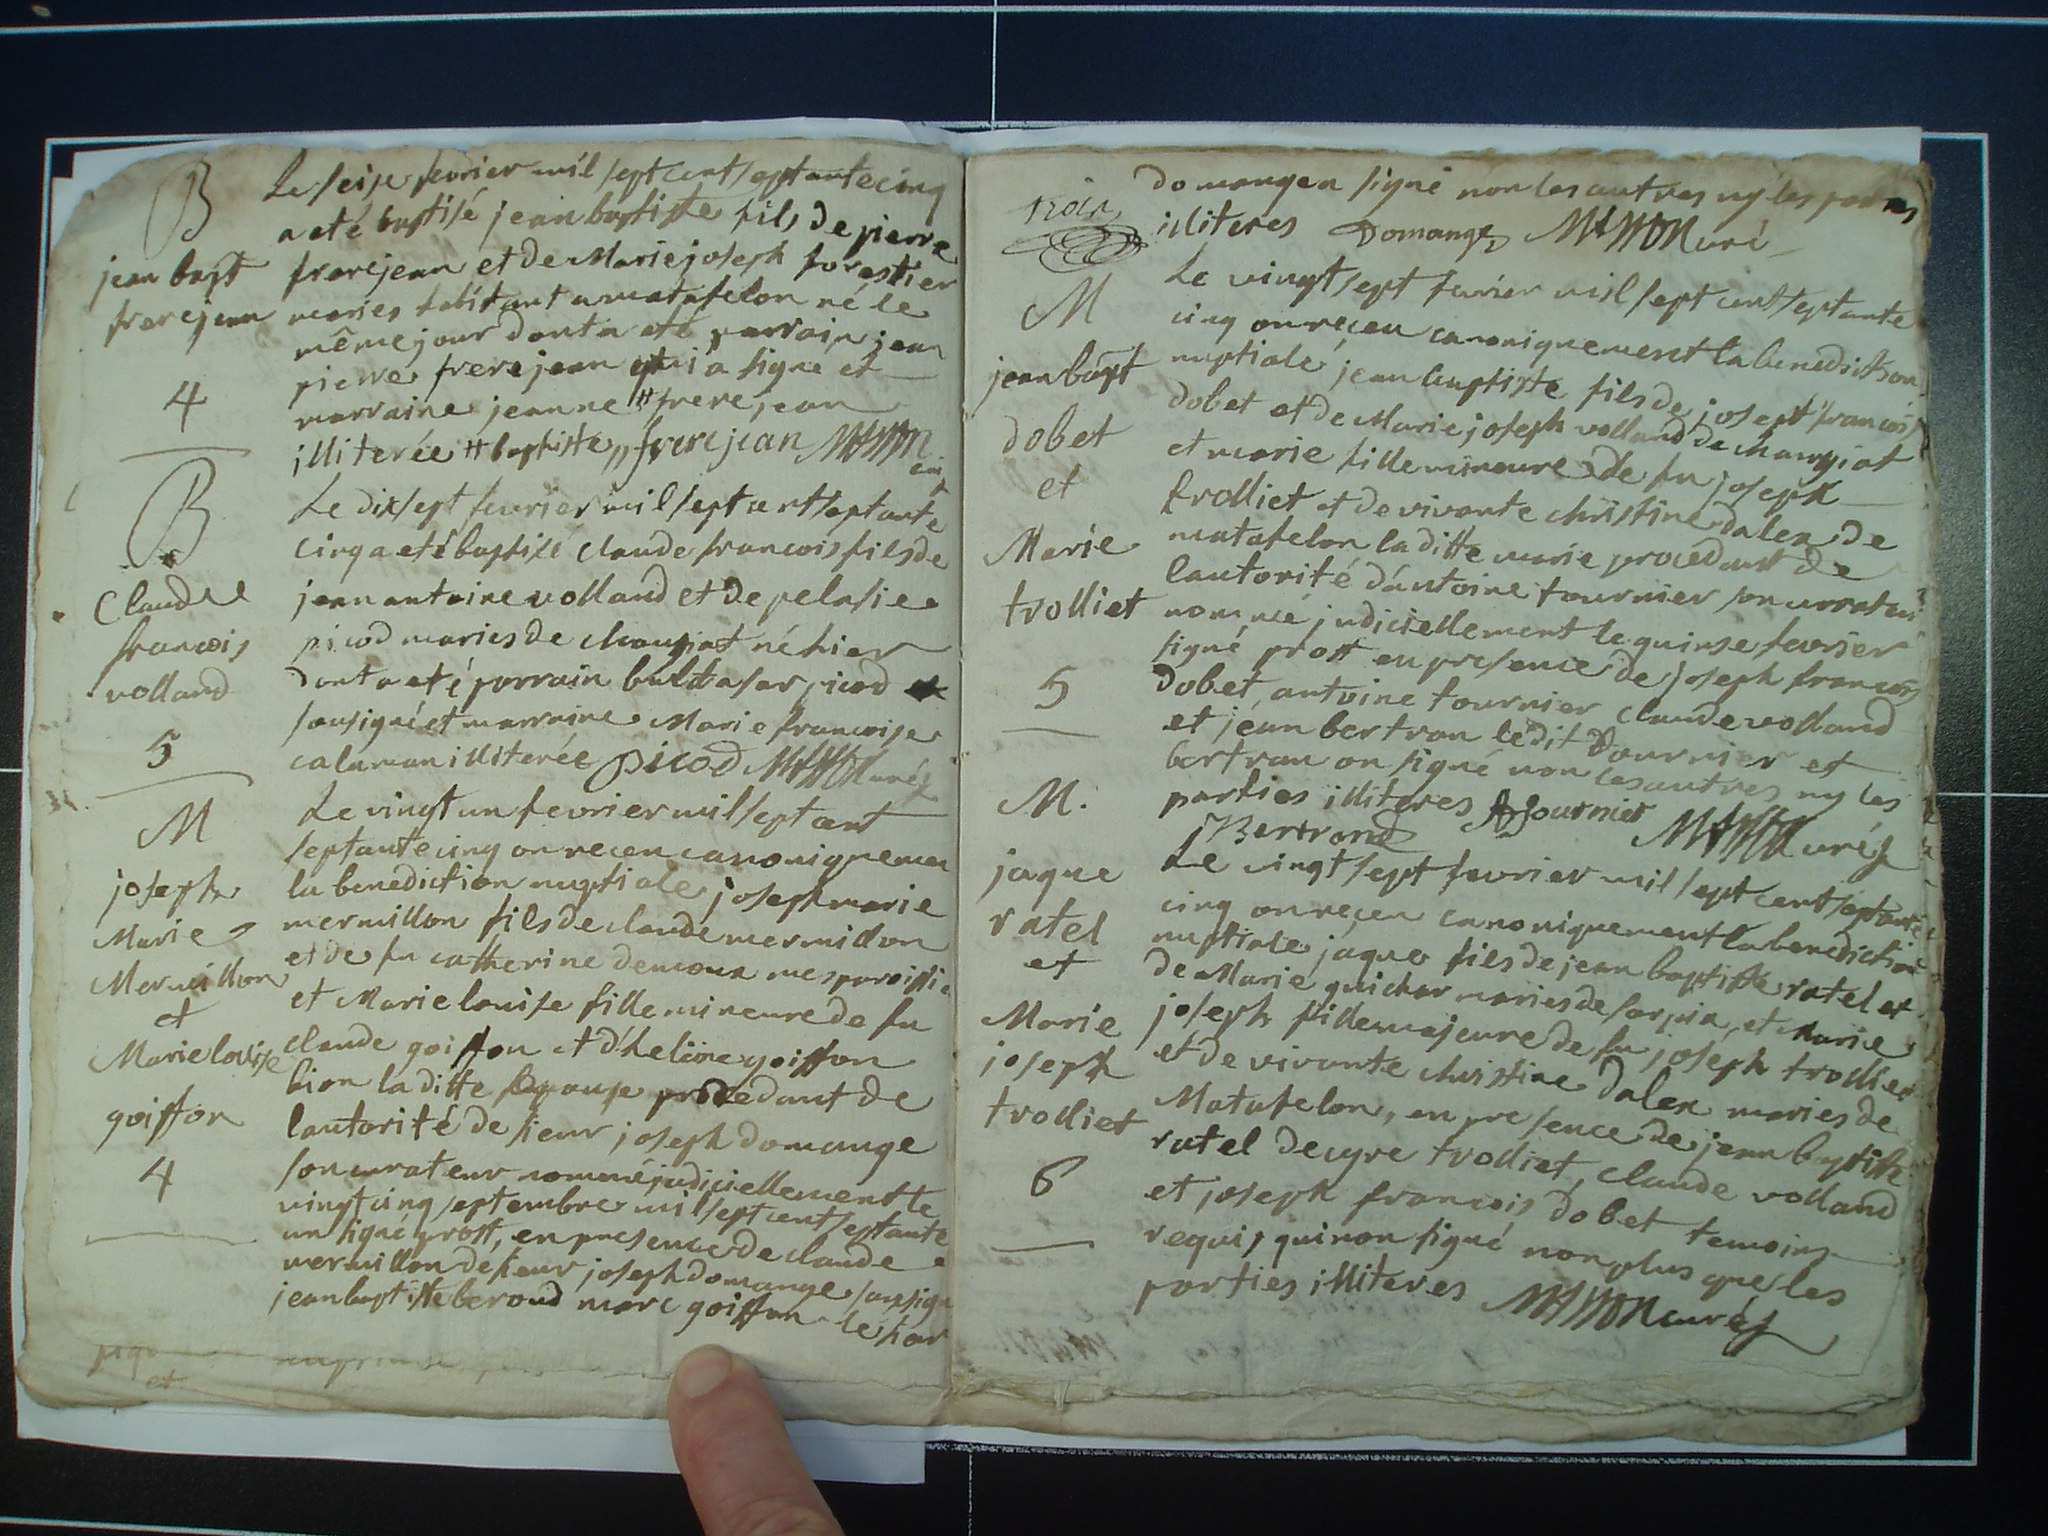 B
jean bapt
frerejean
4
Le seise fevrier mil sept cent septante cinq
a eté baptisé jean baptiste fils de pierre
frerejean et de Marie joseph forestier
mariés habitant a matafelon né le
même jour dont a eté parrain jean
pierre frerejean qui a signé et
marraine jeanne # frerejean
illiterée # baptiste,, frerejean
B
Claude
francois
volland
5
Le dixsept fevrier mil sept cent septante
cinq a eté baptisé claude francois fils de
jean antoine volland et de pelasie
picod mariés de changiat né hier
dont a eté parrain baltasar picod
sousigné et marraine Marie francoise
calaman illiterée picod MASSON curé
M
joseph
Marie
Mermillon
et
Marie louise
goiffon
4
Le vingt un fevrier mil sept cent
septante cinq on receu canoniquemen
la benediction nuptiale joseph marie
mermillon fils de claude mermillon
et de fu catherine demoux mes paroissie
et Marie louise fille mineure de fu
claude goiffon et d'helêine goiffon
bion la ditte Epouse procedant de
lautorité de sieur joseph domange
son curateur nommé judiciellement le
vingt cinq septembre mil sept cent septante
un signé prost, en presence de claude
mermillon de sieur joseph domange sousigné
jean baptiste beroud marc goiffon le sieur
et
troix
domange a signé non les autres ny les parties
illiteres Domange MASSON curé
M
jean bapt
dobet
et
Marie
trolliet
5
Le vingt sept fevrier mil sept cent septante
cinq on reçeu canoniquement la benediction
nuptiale jean baptiste fils de joseph francois
dobet et de Marie joseph volland de changiat
et marie fille mineure de fu joseph
trolliet et de vivante christine dalex de
matafelon la ditte marie procedant de
lautorité d'antoine tournier son curateur
nommé judiciellement le quinse fevrier
signé prost en presence de joseph francois
dobet, antoine tournier claude volland
et jean bertran ledit tournier et
bertran on signé non les autres ny les
parties illiteres tournier
Bertrand MASSON curé
M.
jaque
ratel
et
Marie
joseph
trolliet
6
Le vingt sept fevrier mil sept cent septante
cinq on receu canoniquement la benediction
nuptiale jaque fils de jean baptiste ratel et
de Marie guichar mariés de sarpia, et Marie
joseph fille majeure de fu joseph trolliet
et de vivante christine dalex mariés de
Matafelon, en presence de jean baptiste
ratel decyre trolliet, claude volland
et joseph francois dobet temoins
requis qui non signé non plus que les
parties illiteres MASSON curé